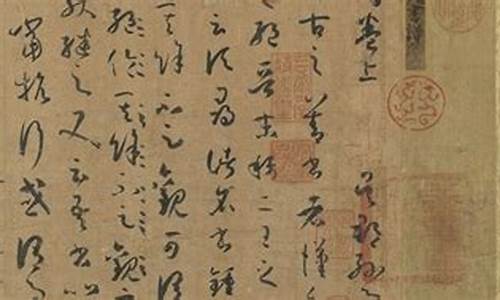 譜卷上 吳郡孫過
古之善書者漢
之絕晉末稱二王之
云頃尋諸名書鍾
其餘不足觀可謂
絕倫其餘不足觀
獻繼之又云吾書比
當抗行或謂過